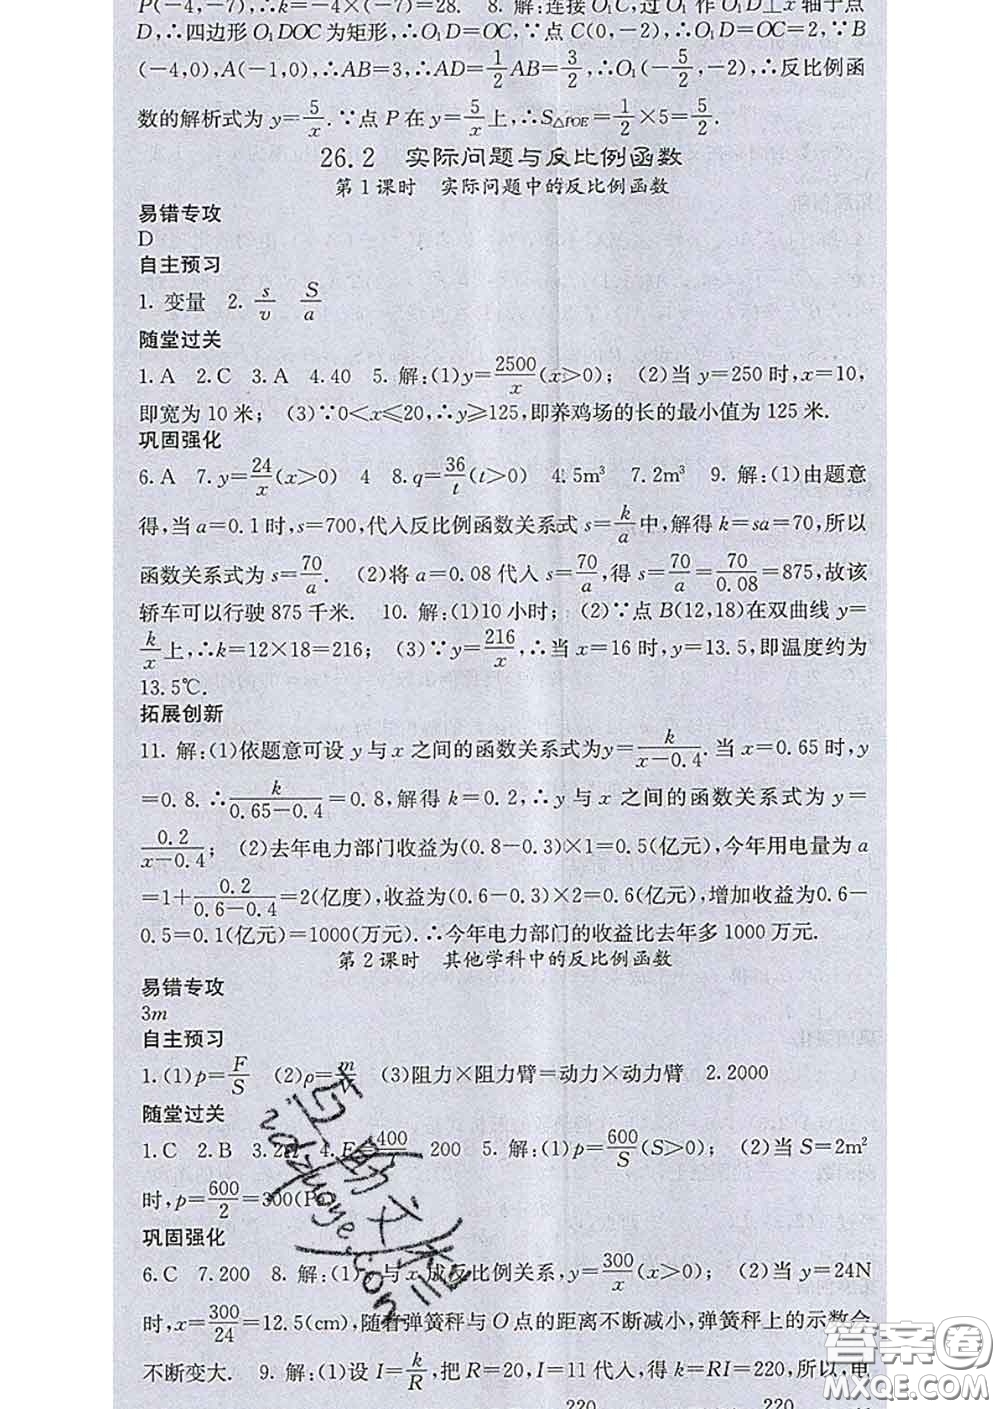 P(-4,-7),∴k=-4×(-7)=28. 8. 解:连接O₁C,过O₁作O₁D⊥x轴于点
D,∴四边形O₁DOC为矩形,∴O₁D=OC,∵点C(0,-2),∴O₁D=OC=2,∵B
(-4,0),A(-1,0),∴AB=3,∴AD=1/2AB=3/2,∴O₁(-5/2,-2),∴反比例函
数的解析式为y=5/x.∵点P在y=5/x上,∴S△POE=1/2×5=5/2.
26.2 实际问题与反比例函数
第1课时 实际问题中的反比例函数
易错专攻
D
自主预习
1. 变量 2. s/v S/a
随堂过关
1.A 2.C 3.A 4.40 5. 解:(1)y=2500/x(x>0); (2)当y=250时,x=10,
即宽为10米; (3)∵0<x≤20,∴y≥125,即养鸡场的长的最小值为125米.
巩固强化
6.A 7.y=24/x(x>0) 4 8.q=36/t(t>0) 4.5m³ 7.2m³ 9. 解:(1)由题意
得,当a=0.1时,s=700,代入反比例函数关系式s=k/a中,解得k=sa=70,所以
函数关系式为s=70/a. (2)将a=0.08代入s=70/a,得s=70/a=70/0.08=875,故该
轿车可以行驶875千米. 10. 解:(1)10小时; (2)∵点B(12,18)在双曲线y=
k/x上,∴k=12×18=216; (3)∵y=216/x,∴当x=16时,y=13.5,即温度约为
13.5℃.
拓展创新
11. 解:(1)依题意可设y与x之间的函数关系式为y=k/(x-0.4).当x=0.65时,y
=0.8.∴k/(0.65-0.4)=0.8,解得k=0.2,∴y与x之间的函数关系式为y=
0.2/(x-0.4); (2)去年电力部门收益为(0.8-0.3)×1=0.5(亿元),今年用电量为a
=1+0.2/(0.6-0.4)=2(亿度),收益为(0.6-0.3)×2=0.6(亿元),增加收益为0.6-
0.5=0.1(亿元)=1000(万元).∴今年电力部门的收益比去年多1000万元.
第2课时 其他学科中的反比例函数
易错专攻
3m
自主预习
1.(1)p=F/S (2)ρ=m/ (3)阻力×阻力臂=动力×动力臂 2.2000
随堂过关
1.C 2.B 3. 4. 400/ 200 5. 解:(1)p=600/S(S>0); (2)当S=2m²
时,p=600/2=300(P
巩固强化
6.C 7.200 8. 解:(1) 与x成反比例关系,y=300/x(x>0); (2)当y=24N
时,x=300/24=12.5(cm),随着弹簧秤与O点的距离不断减小,弹簧秤上的示数会
不断变大. 9. 解:(1)设I=k/R,把R=20,I=11代入,得k=RI=220,所以,电
220 220
答案圈
MXQE.COM